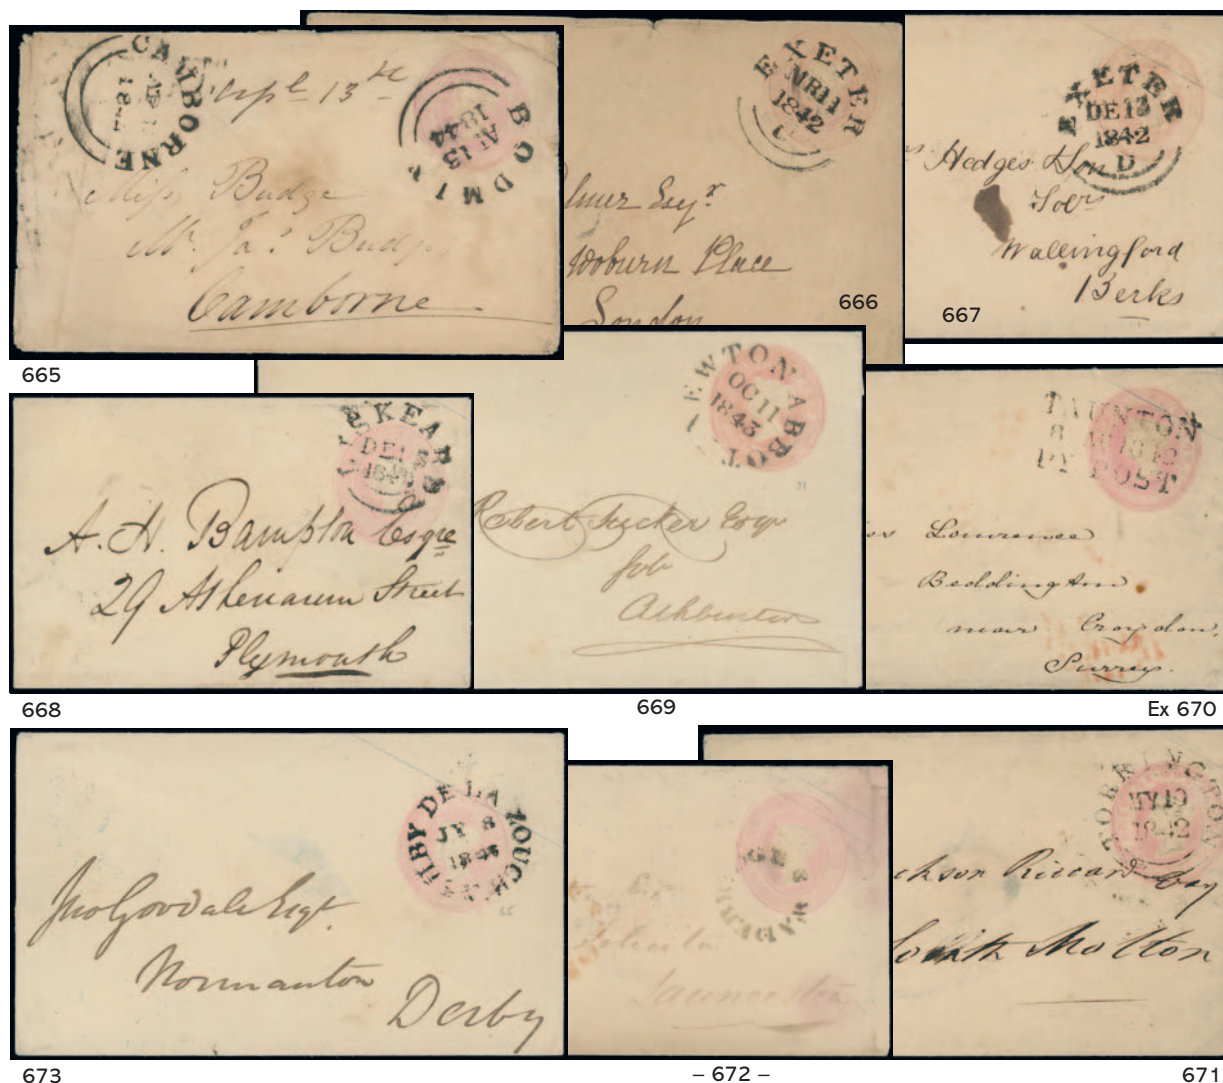 CAMBORNE
BODMIN
AP 13
1844
April 13th
Miss Budge
Mr. Jas. Budge
Camborne
665
EXETER
MR 11
1842
Esqr.
Woburn Place
London
666
EXETER
DE 13
1842
D
Hedges & Son
Solrs
Wallingford
Berks
667
LISKEARD
A. H. Bampton Esqre
29 Athenaeum Street
Plymouth
668
NEWTON ABBOT
OC 11
1843
31
Robert Tucker Esqr
Ashburton
669
TAUNTON
PY POST
Lowrence
Beddington
near Croydon,
Surrey.
Ex 670
ASHBY DE LA ZOUCH
JY 8
65
Jno Goodale Esqr.
Normanton
Derby
673
WADEBRIDGE
Launceston
– 672 –
TORRINGTON
MY 10
1842
Riccard
South Molton
671